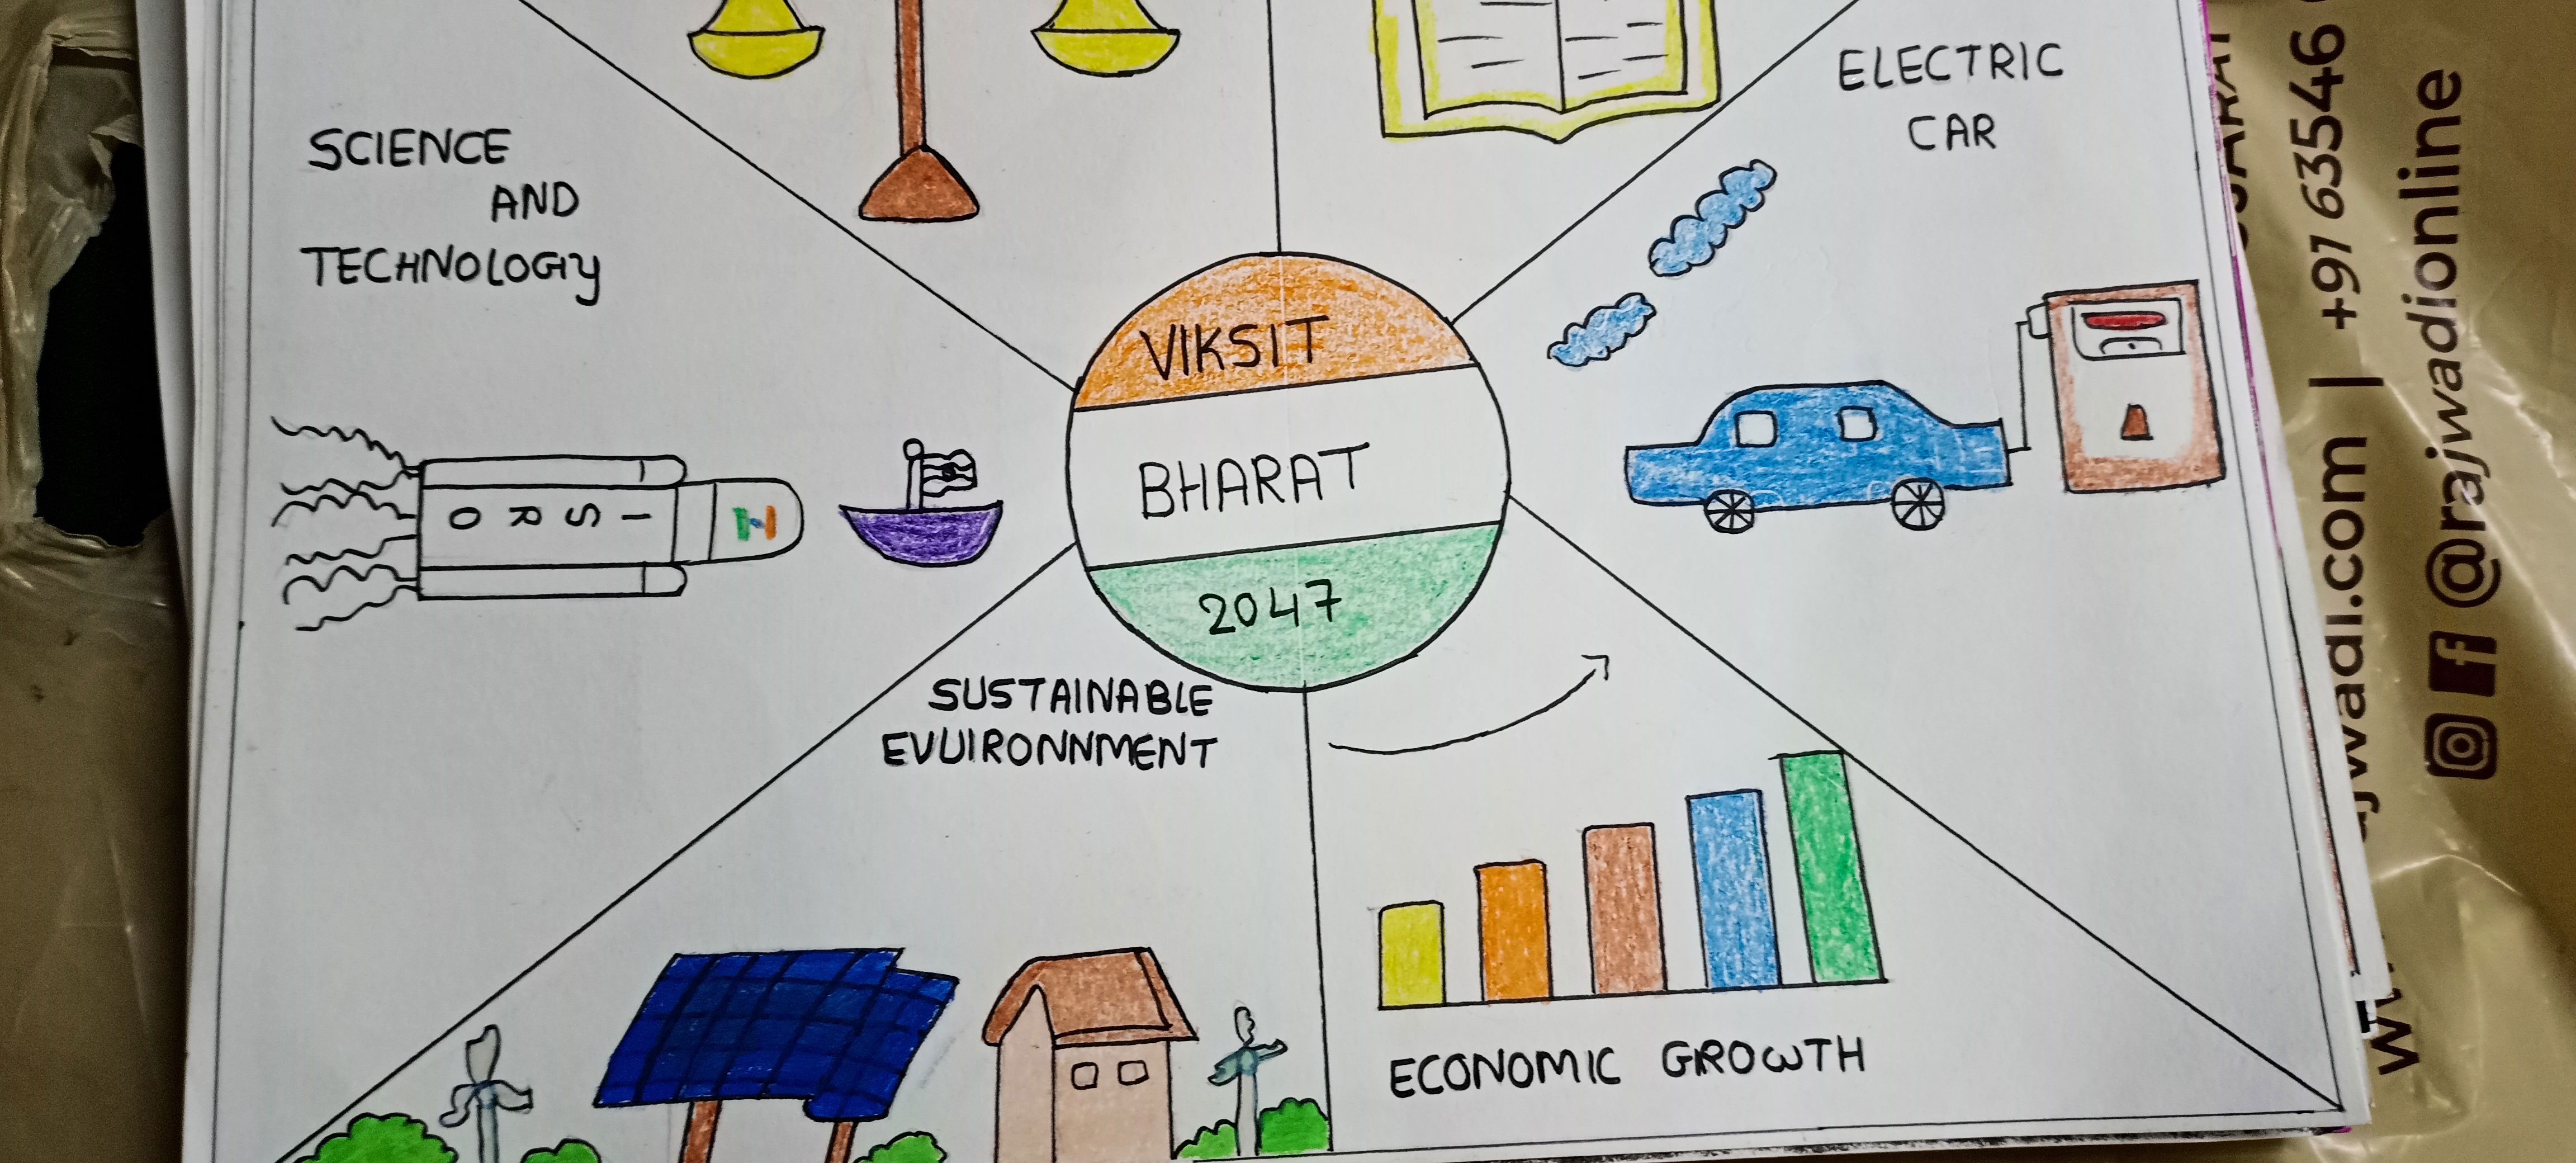 ELECTRIC
CAR
SCIENCE
AND
TECHNOLOGY
VIKSIT
BHARAT
2047
ISRO
SUSTAINABLE
EVUIRONNMENT
ECONOMIC GROWTH
+91 63546
@rajwadionline